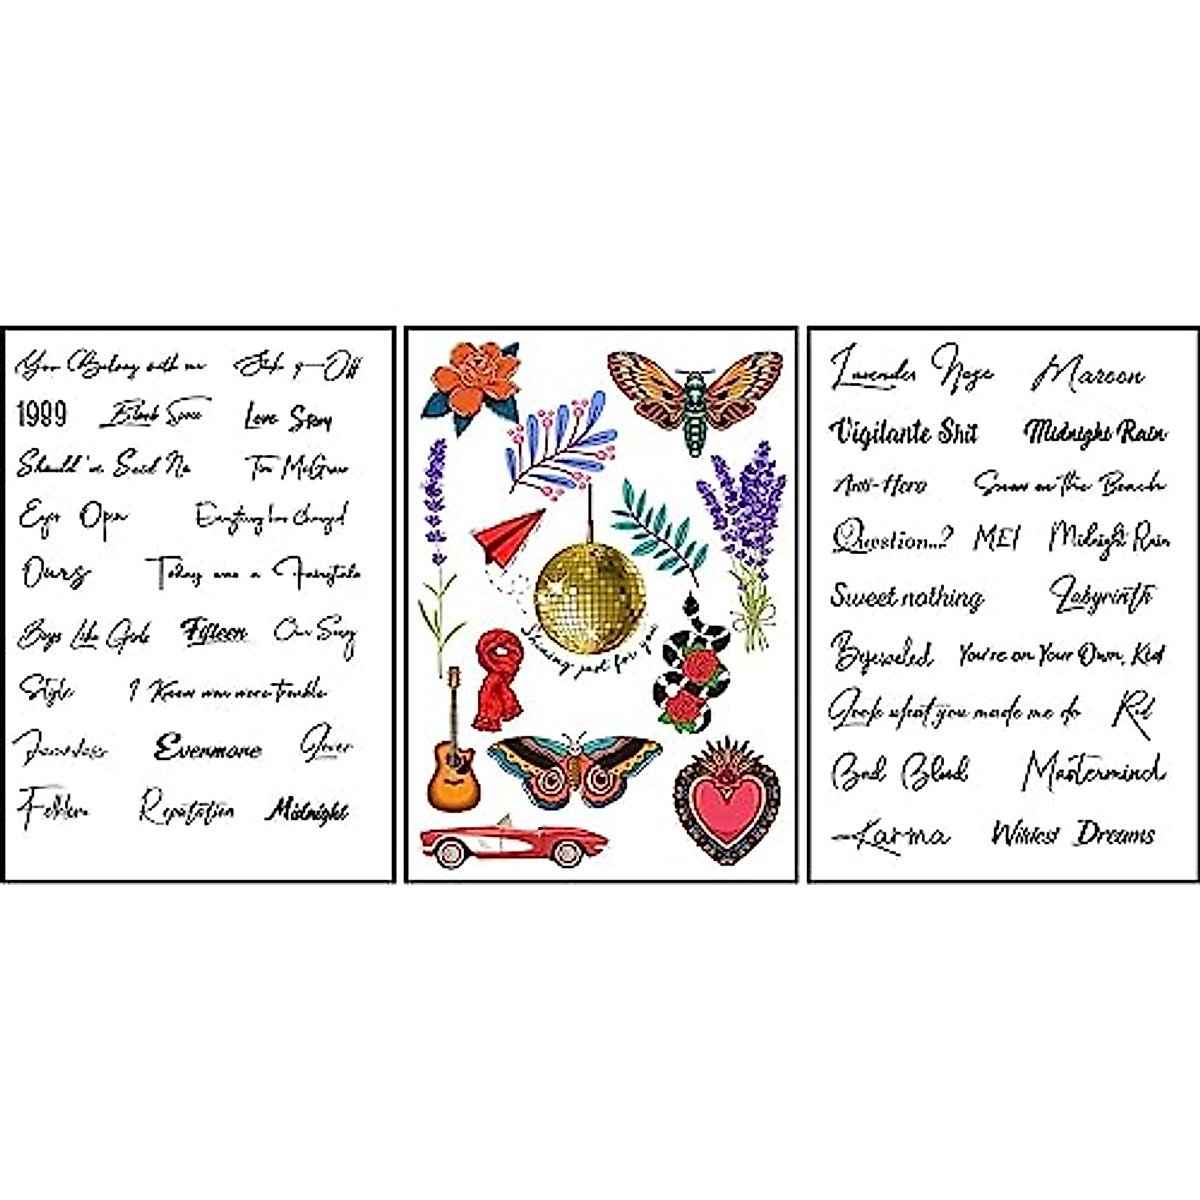 You Belong with me Shake it Off
1989 Blank Space Love Story
Should've Said No Tim McGraw
Eyes Open Everything has changed
Ours Today was a Fairytale
Boys Like Girls Fifteen Our Song
Style I Knew were trouble
Fearless Evermore Lover
Folklore Reputation Midnight
Shining just for you
Lavender Haze Maroon
Vigilante Shit Midnight Rain
Anti-Hero Snow on the Beach
Question...? ME! Midnight Rain
Sweet nothing Labyrinth
Bejeweled You're on Your Own, Kid
Look what you made me do Red
Bad Blood Mastermind
Karma Wildest Dreams